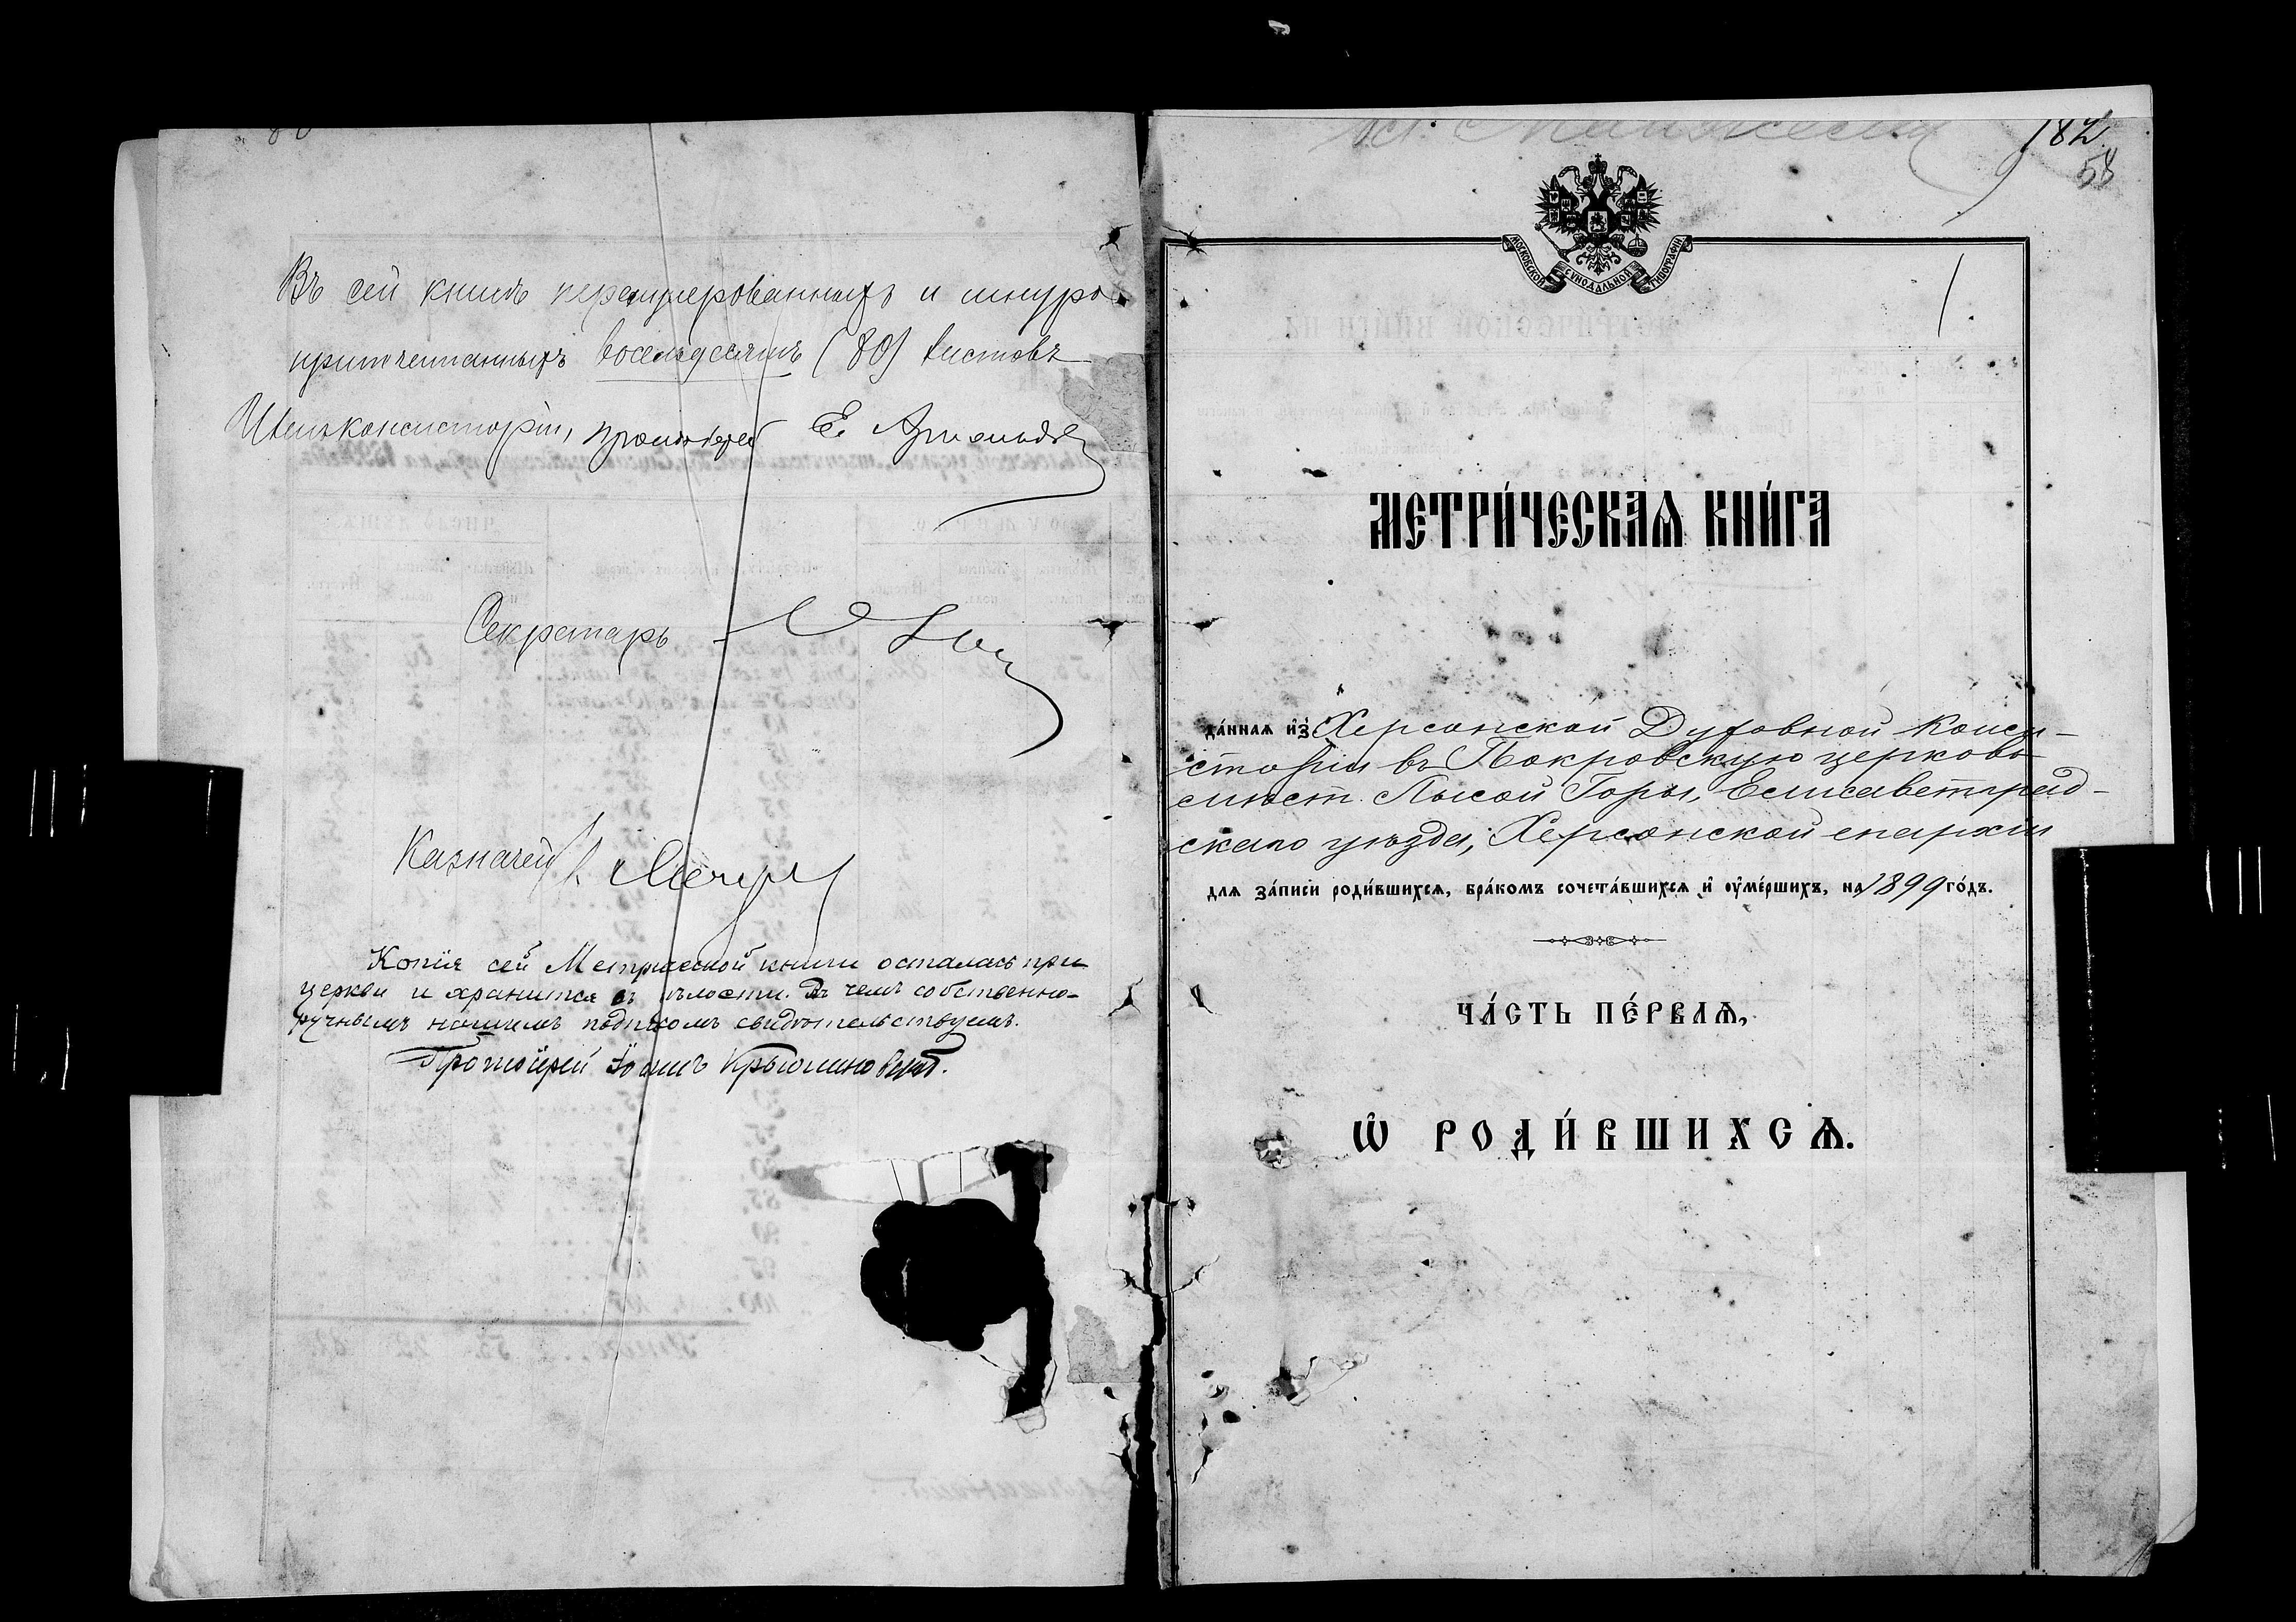 Въ сей книгѣ перенумерованныхъ и шнуро
припечатанныхъ восемьдесятъ (80) листовъ
Членъ консисторіи, протоіерей Е.
Секретарь
Казначей
Копія сей Метрической книги осталась при
церкви и хранится въ цѣлости. Въ чемъ собственно-
ручнымъ нашимъ подписомъ свидѣтельствуемъ.
Протоіерей Іоаннъ Крыжановскій.
182
58
МОСКОВСКОЙ СѴНОДАЛЬНОЙ ТИПОГРАФІИ
1.
МЕТРИ́ЧЕСКАѦ КНИ́ГА
да́ннаѧ из̾ Херсонской Духовной Конси-
сторіи въ Покровскую церковь
мѣст. Лысой Горы, Елисаветград-
скаго уѣзда, Херсонской епархіи
длѧ за́писи роди́вшихсѧ, бра́комъ сочета́вшихсѧ и҆ ѹ҆ме́ршихъ, на 1899 го́дъ.
ЧА́СТЬ ПЕ́РВАѦ,
Ѡ҆ РОДИ́ВШИХСѦ.